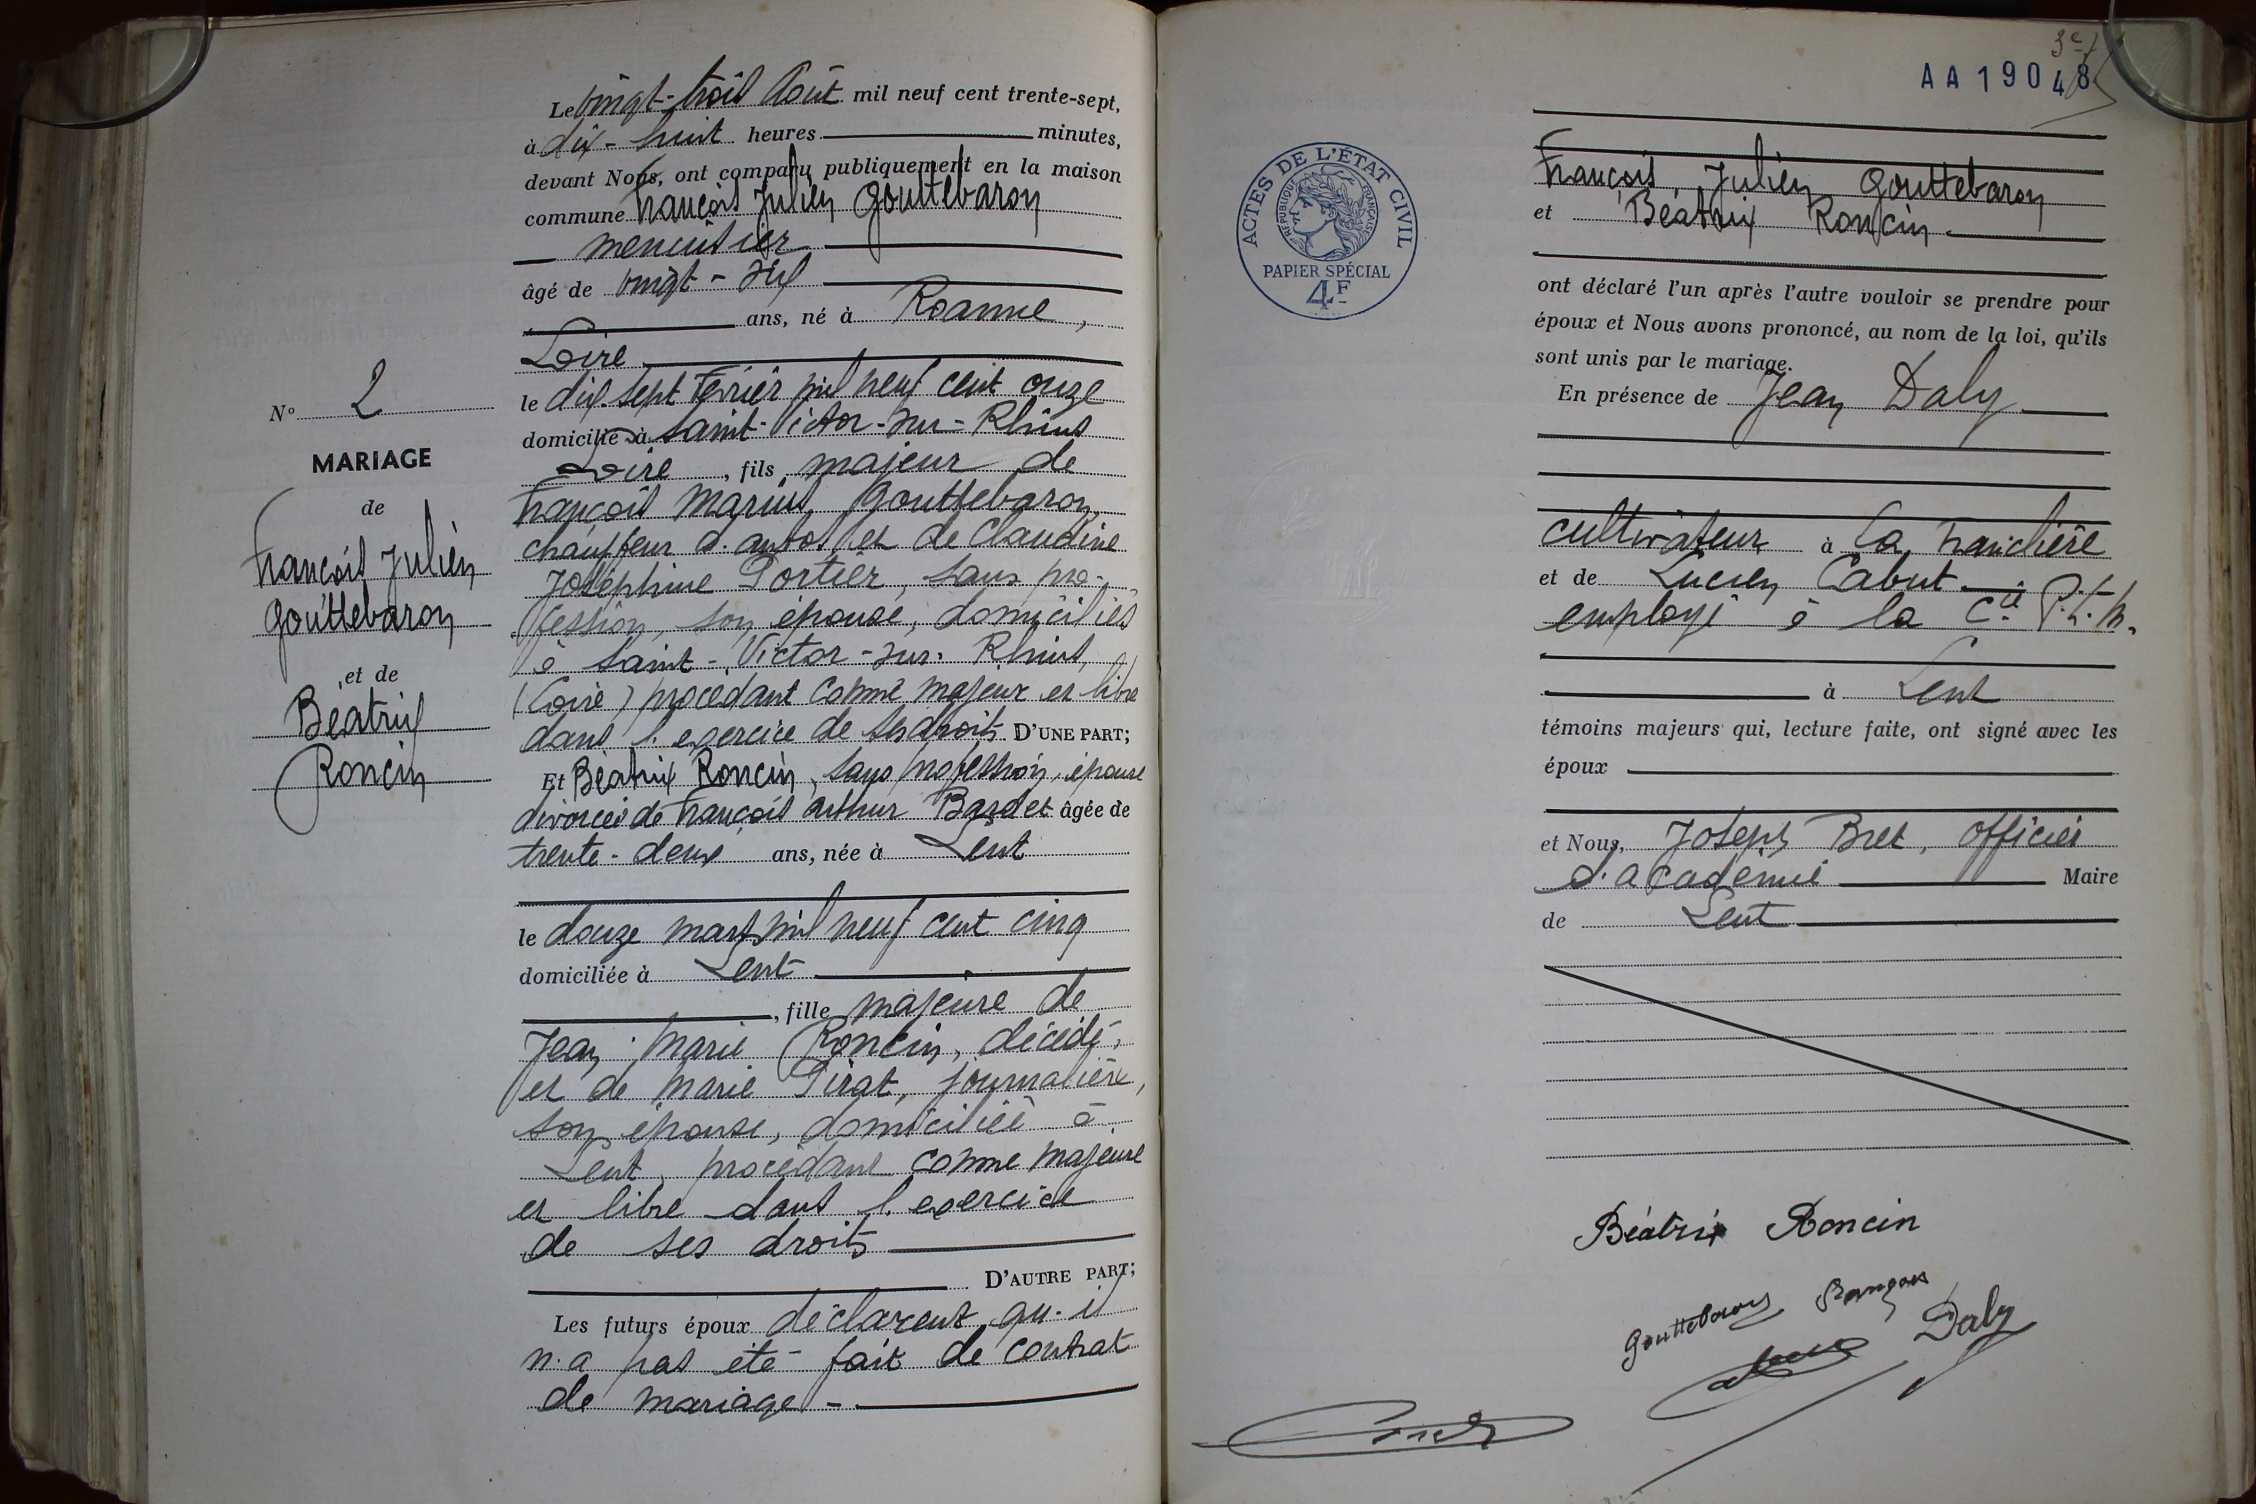 Le vingt-trois Août mil neuf cent trente-sept,
à dix-huit heures minutes,
devant Nous, ont comparu publiquement en la maison
commune François Julien Gouttebaron
menuisier
âgé de vingt-six
ans, né à Roanne,
Loire
le dix-sept Février mil neuf cent onze
domicilié à Saint-Victor-sur-Rhins
Loire, fils majeur de
François Marius Gouttebaron,
chauffeur d'autos et de Claudine
Joséphine Portier, sans pro-
fession, son épouse, domiciliés
à Saint-Victor-sur-Rhins,
(Loire) procédant comme majeur et libre
dans l'exercice de ses droits D'UNE PART;
Et Béatrix Roncin, sans profession, épouse
divorcée de François Arthur Bardet âgée de
trente-deux ans, née à Lent
le douze mars mil neuf cent cinq
domiciliée à Lent
, fille majeure de
Jean Marie Roncin, décédé,
et de Marie Pirat, journalière,
son épouse, domiciliée à
Lent, procédant comme majeure
et libre dans l'exercice
de ses droits
D'AUTRE PART;
Les futurs époux déclarent qu'il
n'a pas été fait de contrat
de mariage -
N° 2
MARIAGE
de
François Julien
Gouttebaron
et de
Béatrix
Roncin
3e
AA 19048
ACTES DE L'ÉTAT CIVIL
RÉPUBLIQUE FRANÇAISE
PAPIER SPÉCIAL
4F
François Julien Gouttebaron
et Béatrix Roncin
ont déclaré l'un après l'autre vouloir se prendre pour
époux et Nous avons prononcé, au nom de la loi, qu'ils
sont unis par le mariage.
En présence de Jean Daly
cultivateur à la
et de Lucien Cabut
employé à la Cie P.L.M.
à Lent
témoins majeurs qui, lecture faite, ont signé avec les
époux
et Nous, Joseph Bret, officier
d'académie Maire
de Lent
Béatrix Roncin
Gouttebaron François
Daly